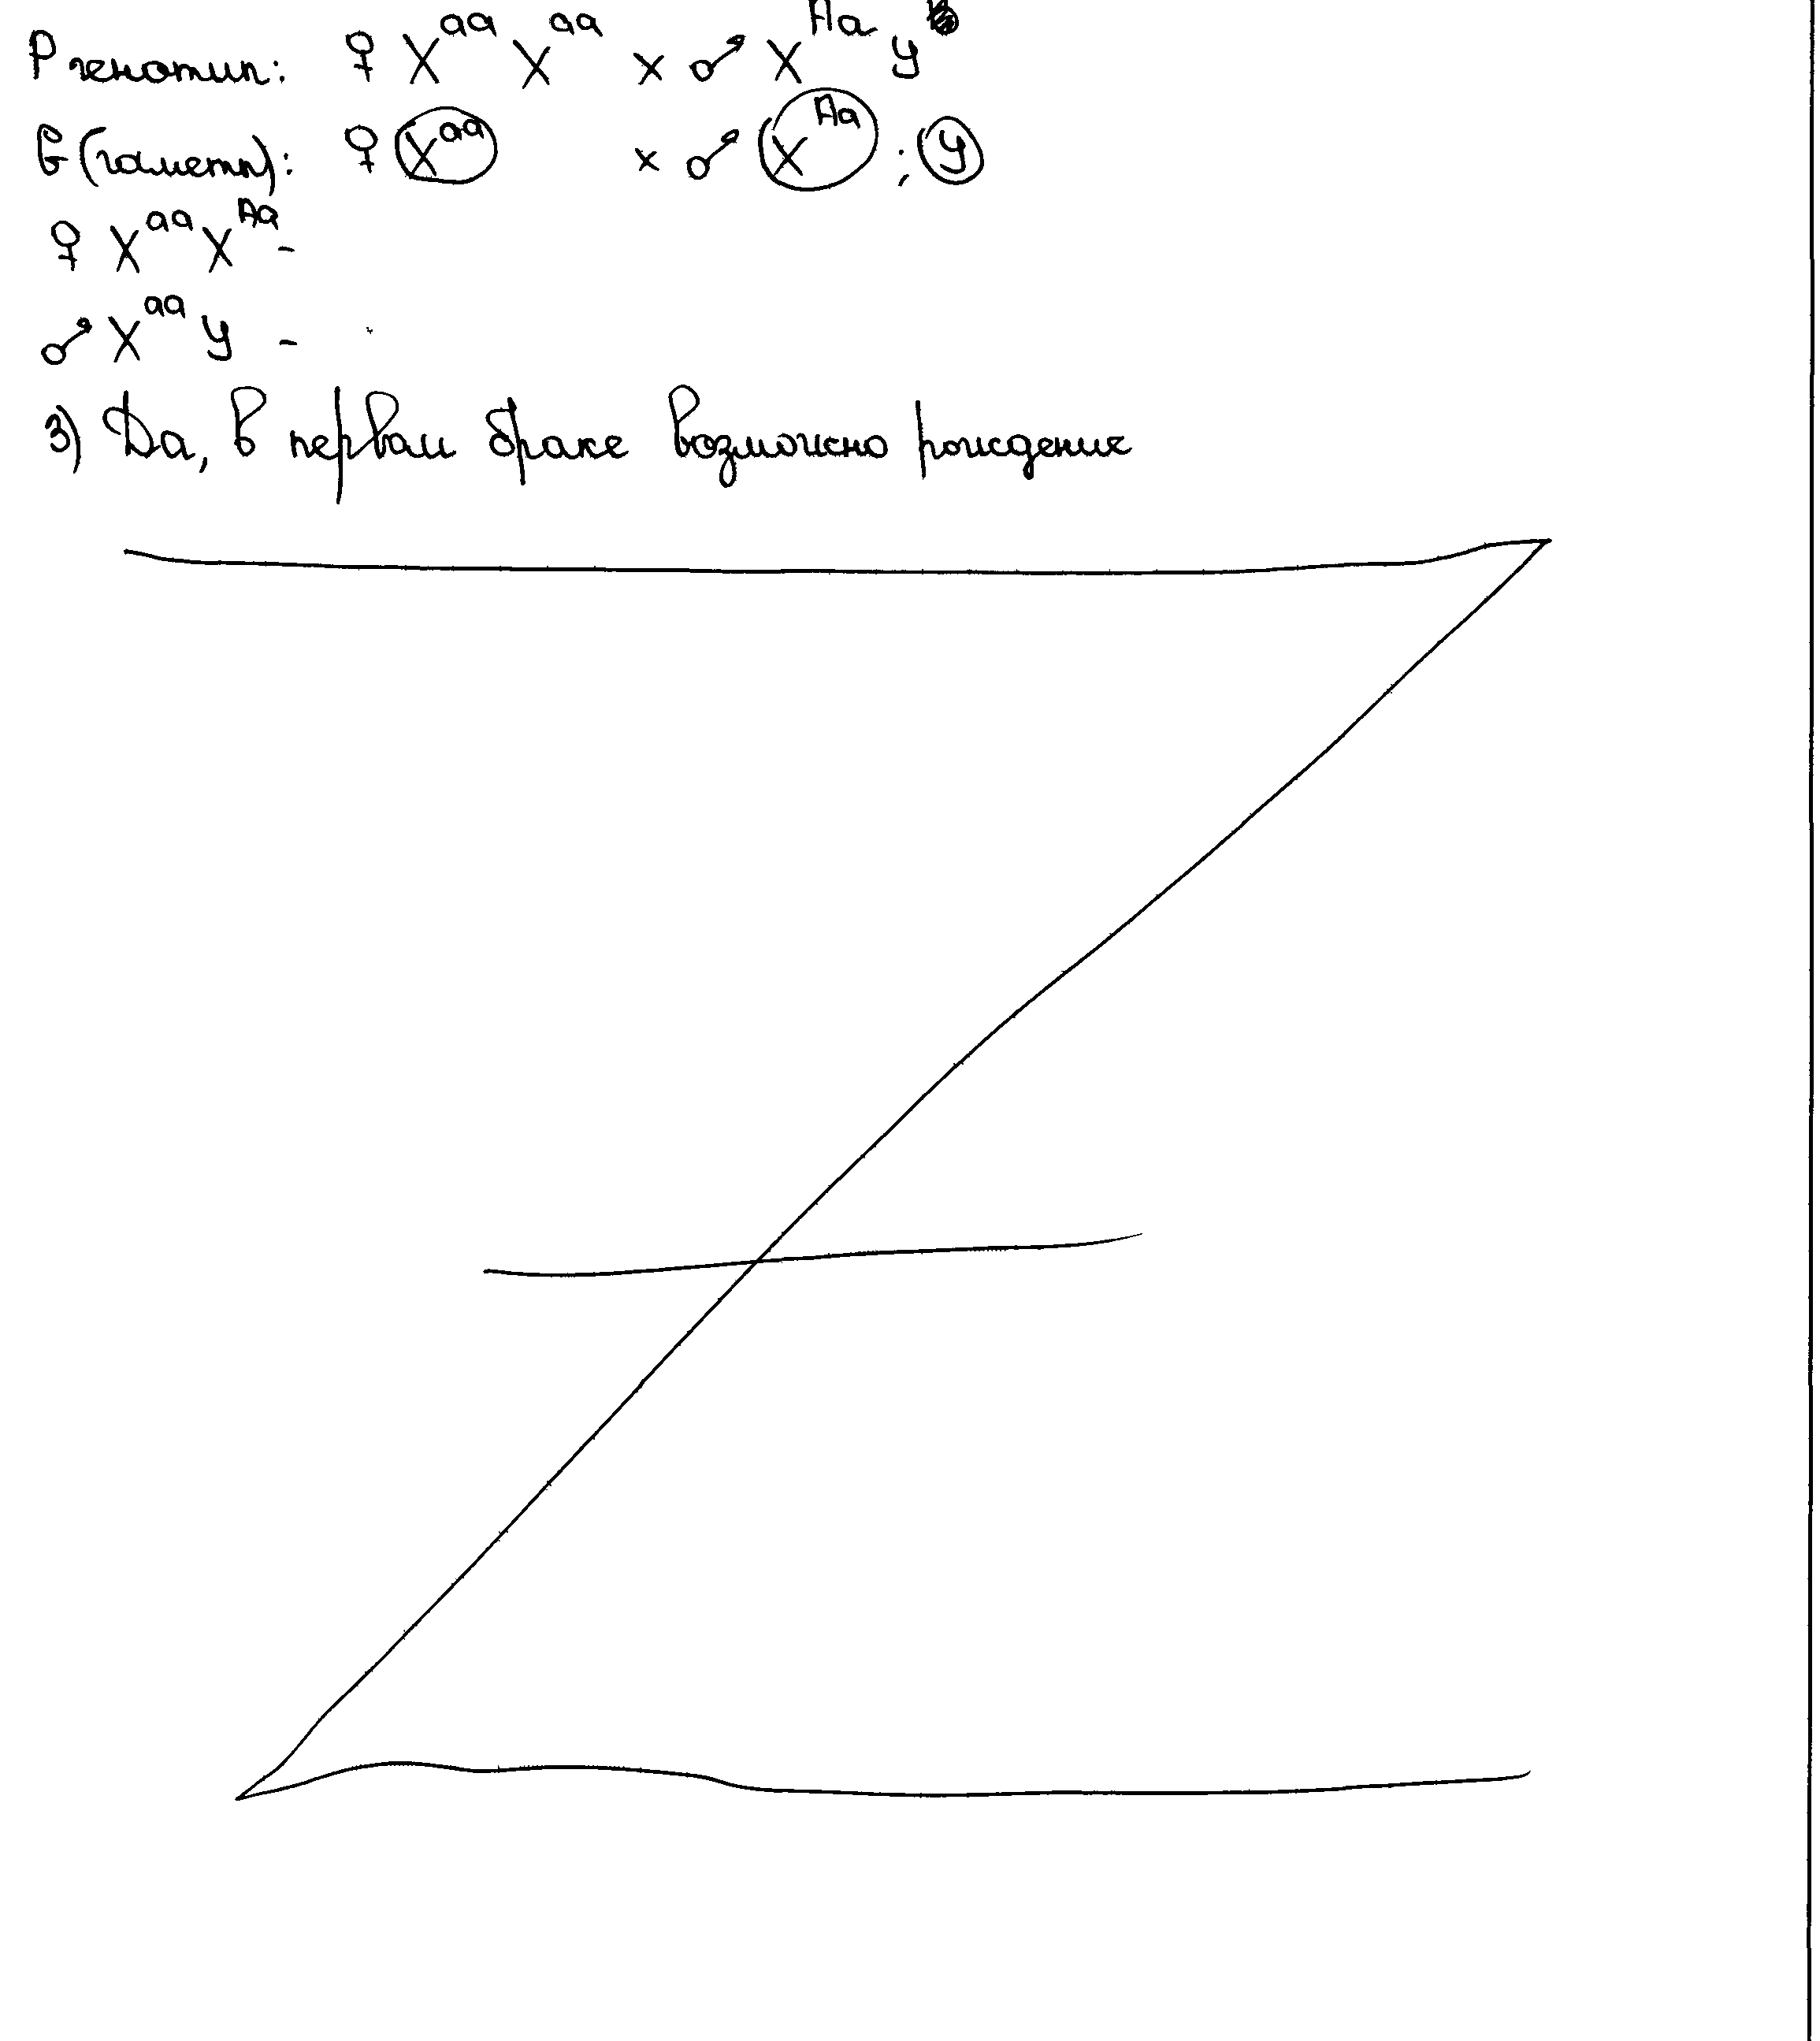 P генотип: ♀ X^aa X^aa x ♂ X^Aa У
G (гаметы): ♀ X^aa x ♂ X^Aa ; У
♀ X^aa X^Aa -
♂ X^aa У -
3) Да, в первом браке возможно рождение